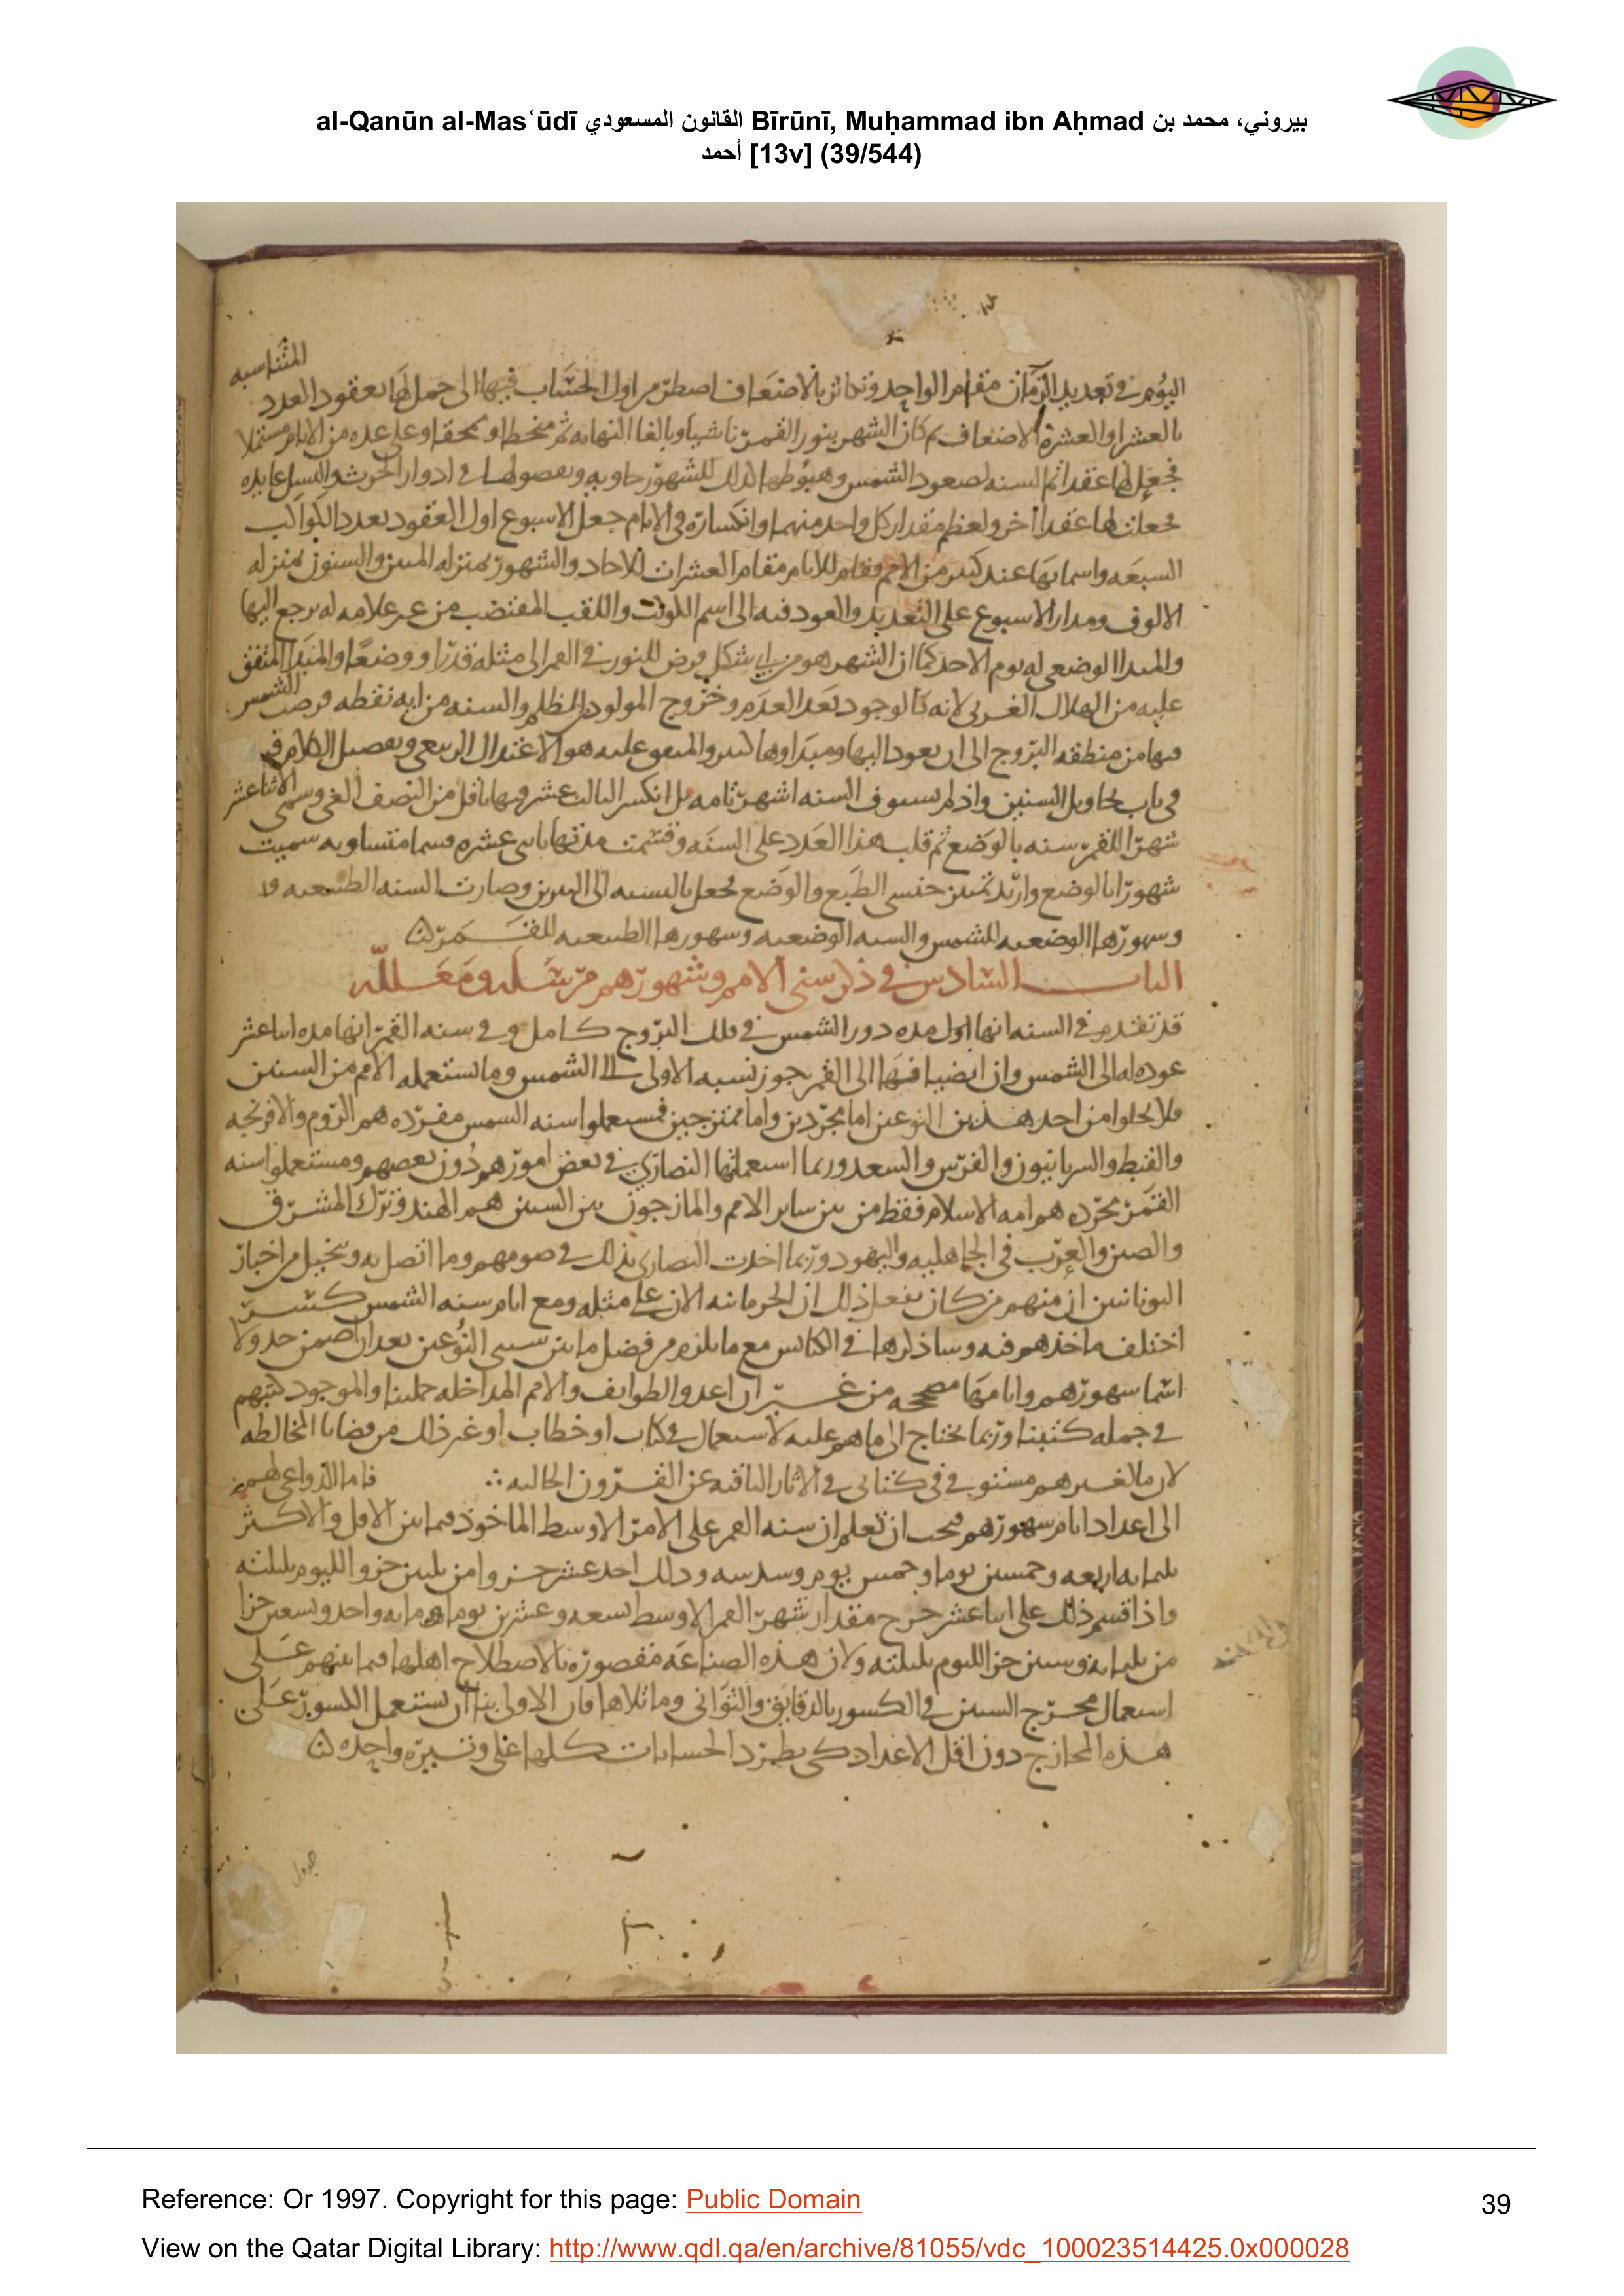 al-Qanūn al-Masʿūdī القانون المسعودي Bīrūnī, Muḥammad ibn Aḥmad بيروني، محمد بن
أحمد [13v] (39/544)
المتناسبه
اليوم في تعديد الزمان مقام الواحد وتكاثر بالاضعاف اضطر من اول الحساب فيها الى جمل لها بعقود العدد
بالعشر او العشرة الاضعاف ثم كان الشهر بنور القمر ناشيا وبالغا النهايه ثم منحطا وممحقا وعلى عده من الايام مشتملا
فجعل لها عقدا ثم السنه لصعود الشمس وهبوطها لذلك للشهور حاويه وبفصولها في ادوار الحرث والنسل عايده
فجعلت لها عقدا اخر ولعظم مقدار كل واحد منهما وانكساره في الايام جعل الاسبوع اول العقود بعدد الكواكب
السبعه واسمايها عند كثير من الامم فقام للايام مقام العشرات للاحاد والشهور بمنزله المئين والسنون بمنزله
الالوف ومدار الاسبوع على التعديد والعود فيه الى اسم الكوكب واللقب المقتضب من غير علامه له يرجع اليها
والمبدا الوضعى له يوم الاحد كما ان الشهر هو من اي شكل فرض للنور في القمر الى مثله قدرا ووضعا والمبدا المتفق
عليه من الهلال الغربى لانه كالوجود بعد العدم وخروج المولود من الظلم والسنه من ايه نقطه فرضت الشمس
فيها من منطقه البروج الى ان يعود اليها ومبداوها كثير والمتفق عليه هو الاعتدال الربيعى وتفصيل الكلام فيه
في باب تحاويل السنين واذ لم يستوف السنه اشهر تامه بل انكسر الثالث عشر فيها باقل من النصف الغى وسمى الاثنا عشر
شهرا للقمر سنه بالوضع ثم قلب هذا العدد على السنه وقسمت مدتها باثنى عشره قسما متساويه سميت
شهورا بالوضع وارتد بين جنسى الطبع والوضع فجعل بالنسبه الى النيرين وصارت السنه الطبيعيه
وشهورها الوضعيه للشمس والسنه الوضعيه وشهورها الطبيعيه للقمر
الباب السادس في ذكر سنى الامم وشهورهم مرسله ومعلله
قد تقدم في السنه انها اول مده دور الشمس في فلك البروج كامل وفي سنه القمر انها مده اثنا عشر
عوده له الى الشمس وان انضيافها الى القمر يجوز نسبه الاولى الى الشمس وما تستعمله الامم من السنين
فلا يخلوا من احد هذين النوعين اما مجردين واما ممتزجين فمستعملوا سنه الشمس مفرده هم الروم والافرنجيه
والقبط والسريانيون والفرس والسغد وربما استعملتها النصارى في بعض امورهم دون بعضهم ومستعملوا سنه
القمر مجرده هم امه الاسلام فقط من بين ساير الامم والمازجون بين السنين هم الهند وترك المشرق
والصين والعرب في الجاهليه واليهود وربما اخذت النصارى بذلك في صومهم وما اتصل به ويتخيل من اخبار
اليونانيين ان منهم من كان يفعل ذلك اذ الحرمانيه الان على مثله ومع ايام سنه الشمس كسر
اختلف ماخذهم فيه وساذكرها في الكبايس مع ما يلزم من فضل ما بين سنى النوعين بعد ان اضمن جدولا
اسما شهورهم وايامها مصححه من غير ان اعدو الطوايف والامم المداخله جملتنا والموجود كتبهم
في جمله كتبنا وربما نحتاج الى ما هم عليه لاستعمال في كتاب او خطاب او غير ذلك من قضايا المخالطه
لان ما لغيرهم مستوفى في كتابى في الاثار الباقيه عن القرون الخاليه ∴ فاما الدواعى لهم
الى اعداد ايام شهورهم فيجب ان تعلم ان سنه القمر على الامر الاوسط الماخوذ فيما بين الاقل والاكثر
ثلثمايه اربعه وخمسين يوما وخمس يوم وسدسه وذلك احد عشر جزوا من ثلثين جزو الليوم بليلته
واذا قسم ذلك على اثنا عشر خرج مقدار شهر القمر الاوسط تسعه وعشرين يوما ومايه واحد وتسعين جزا
من ثلثمايه وستين جزا لليوم بليلته ولان هذه الصناعه مقصوره بالاصطلاح اهلها فيما بينهم على
استعمال مخرج الستين في الكسور بالدقايق والثوانى وما تلاها فان الاولى بنا ان نستعمل الكسور على
هذه المخارج دون اقل الاعداد كى يطرد الحسابات كلها على وتيره واحده
جدول
Reference: Or 1997. Copyright for this page: Public Domain
39
View on the Qatar Digital Library: http://www.qdl.qa/en/archive/81055/vdc_100023514425.0x000028